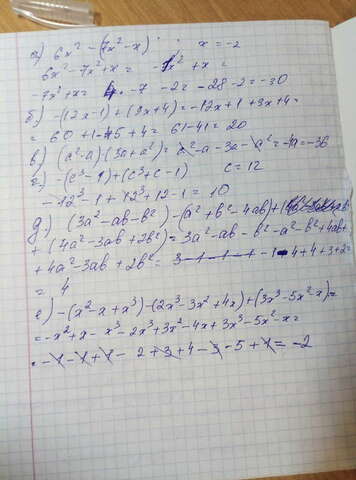 а) 6x² - (7x² - x) x = -2
6x² - 7x² + x = -1x² + x =
-7x² + x = -7 - 2 = -28 - 2 = -30
б) -(12x - 1) + (3x + 4) = -12x + 1 + 3x + 4 =
= 60 + 1 - 45 + 4 = 61 - 41 = 20
в) (a² - a) (3a + a²) = a² - a - 3a - a² = -4a = -36
г) -(c³ - 1) + (c³ + c - 1) c = 12
- 12³ - 1 + 12³ + 12 - 1 = 10
д) (3a² - ab - b²) - (a² + b² - 4ab) +
+ (4a² - 3ab + 2b²) = 3a² - ab - b² - a² - b² + 4ab +
+ 4a² - 3ab + 2b² = 3 - 1 - 1 - 1 - 1 + 4 + 4 + 3 + 2 =
= 4
е) -(x² - x + x³) - (2x³ - 3x² + 4x) + (3x³ - 5x² - x) =
= -x² + x - x³ - 2x³ + 3x² - 4x + 3x³ - 5x² - x =
- 1 - 1 + 1 - 2 + 3 + 4 - 3 - 5 + 1 = -2